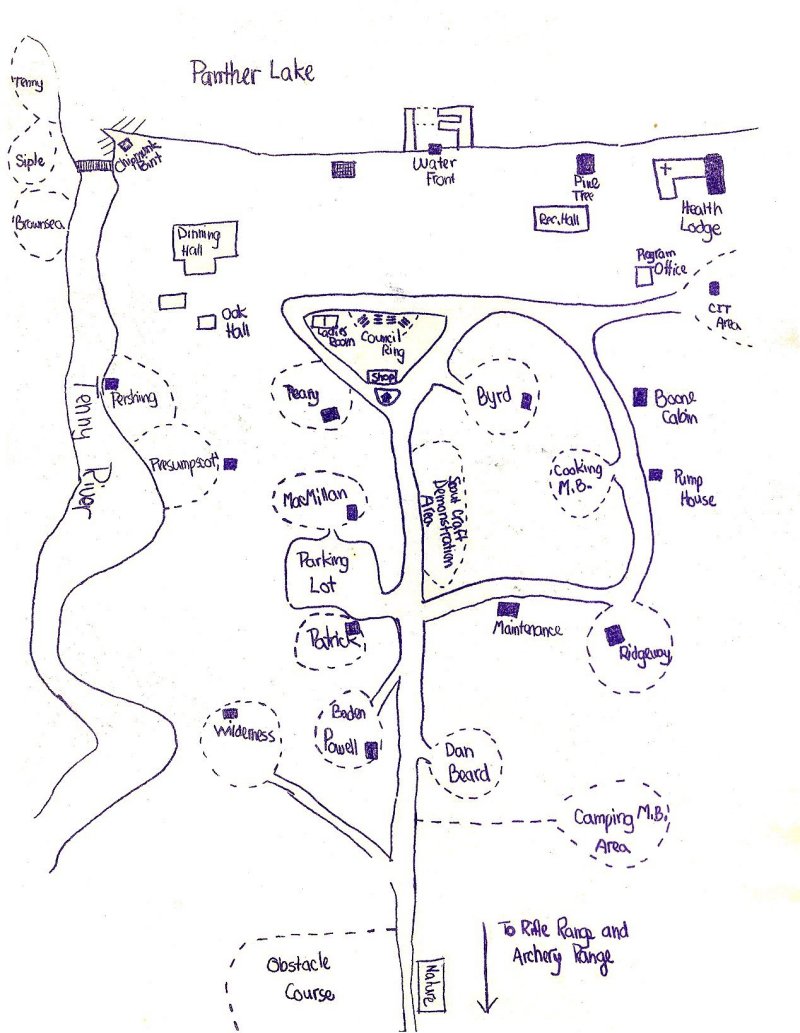 Panther Lake
Tenny
Siple
Brownsea
Chipmunk
Bunt
Water
Front
Pine
Tree
Health
Lodge
Rec. Hall
Dinning
Hall
Program
Office
CIT
Area
Oak
Hall
Ladies
Room
Council
Ring
Shop
Pershing
Peary
Byrd
Boone
Cabin
Tenny
River
Presumpscot
MacMillan
Scout Craft
Demonstration
Area
Cooking
M.B.
Pump
House
Parking
Lot
Patrick
Maintenance
Ridgeway
Wilderness
Baden
Powell
Dan
Beard
Camping M.B.
Area
To Rifle Range and
Archery Range
Obstacle
Course
Nature